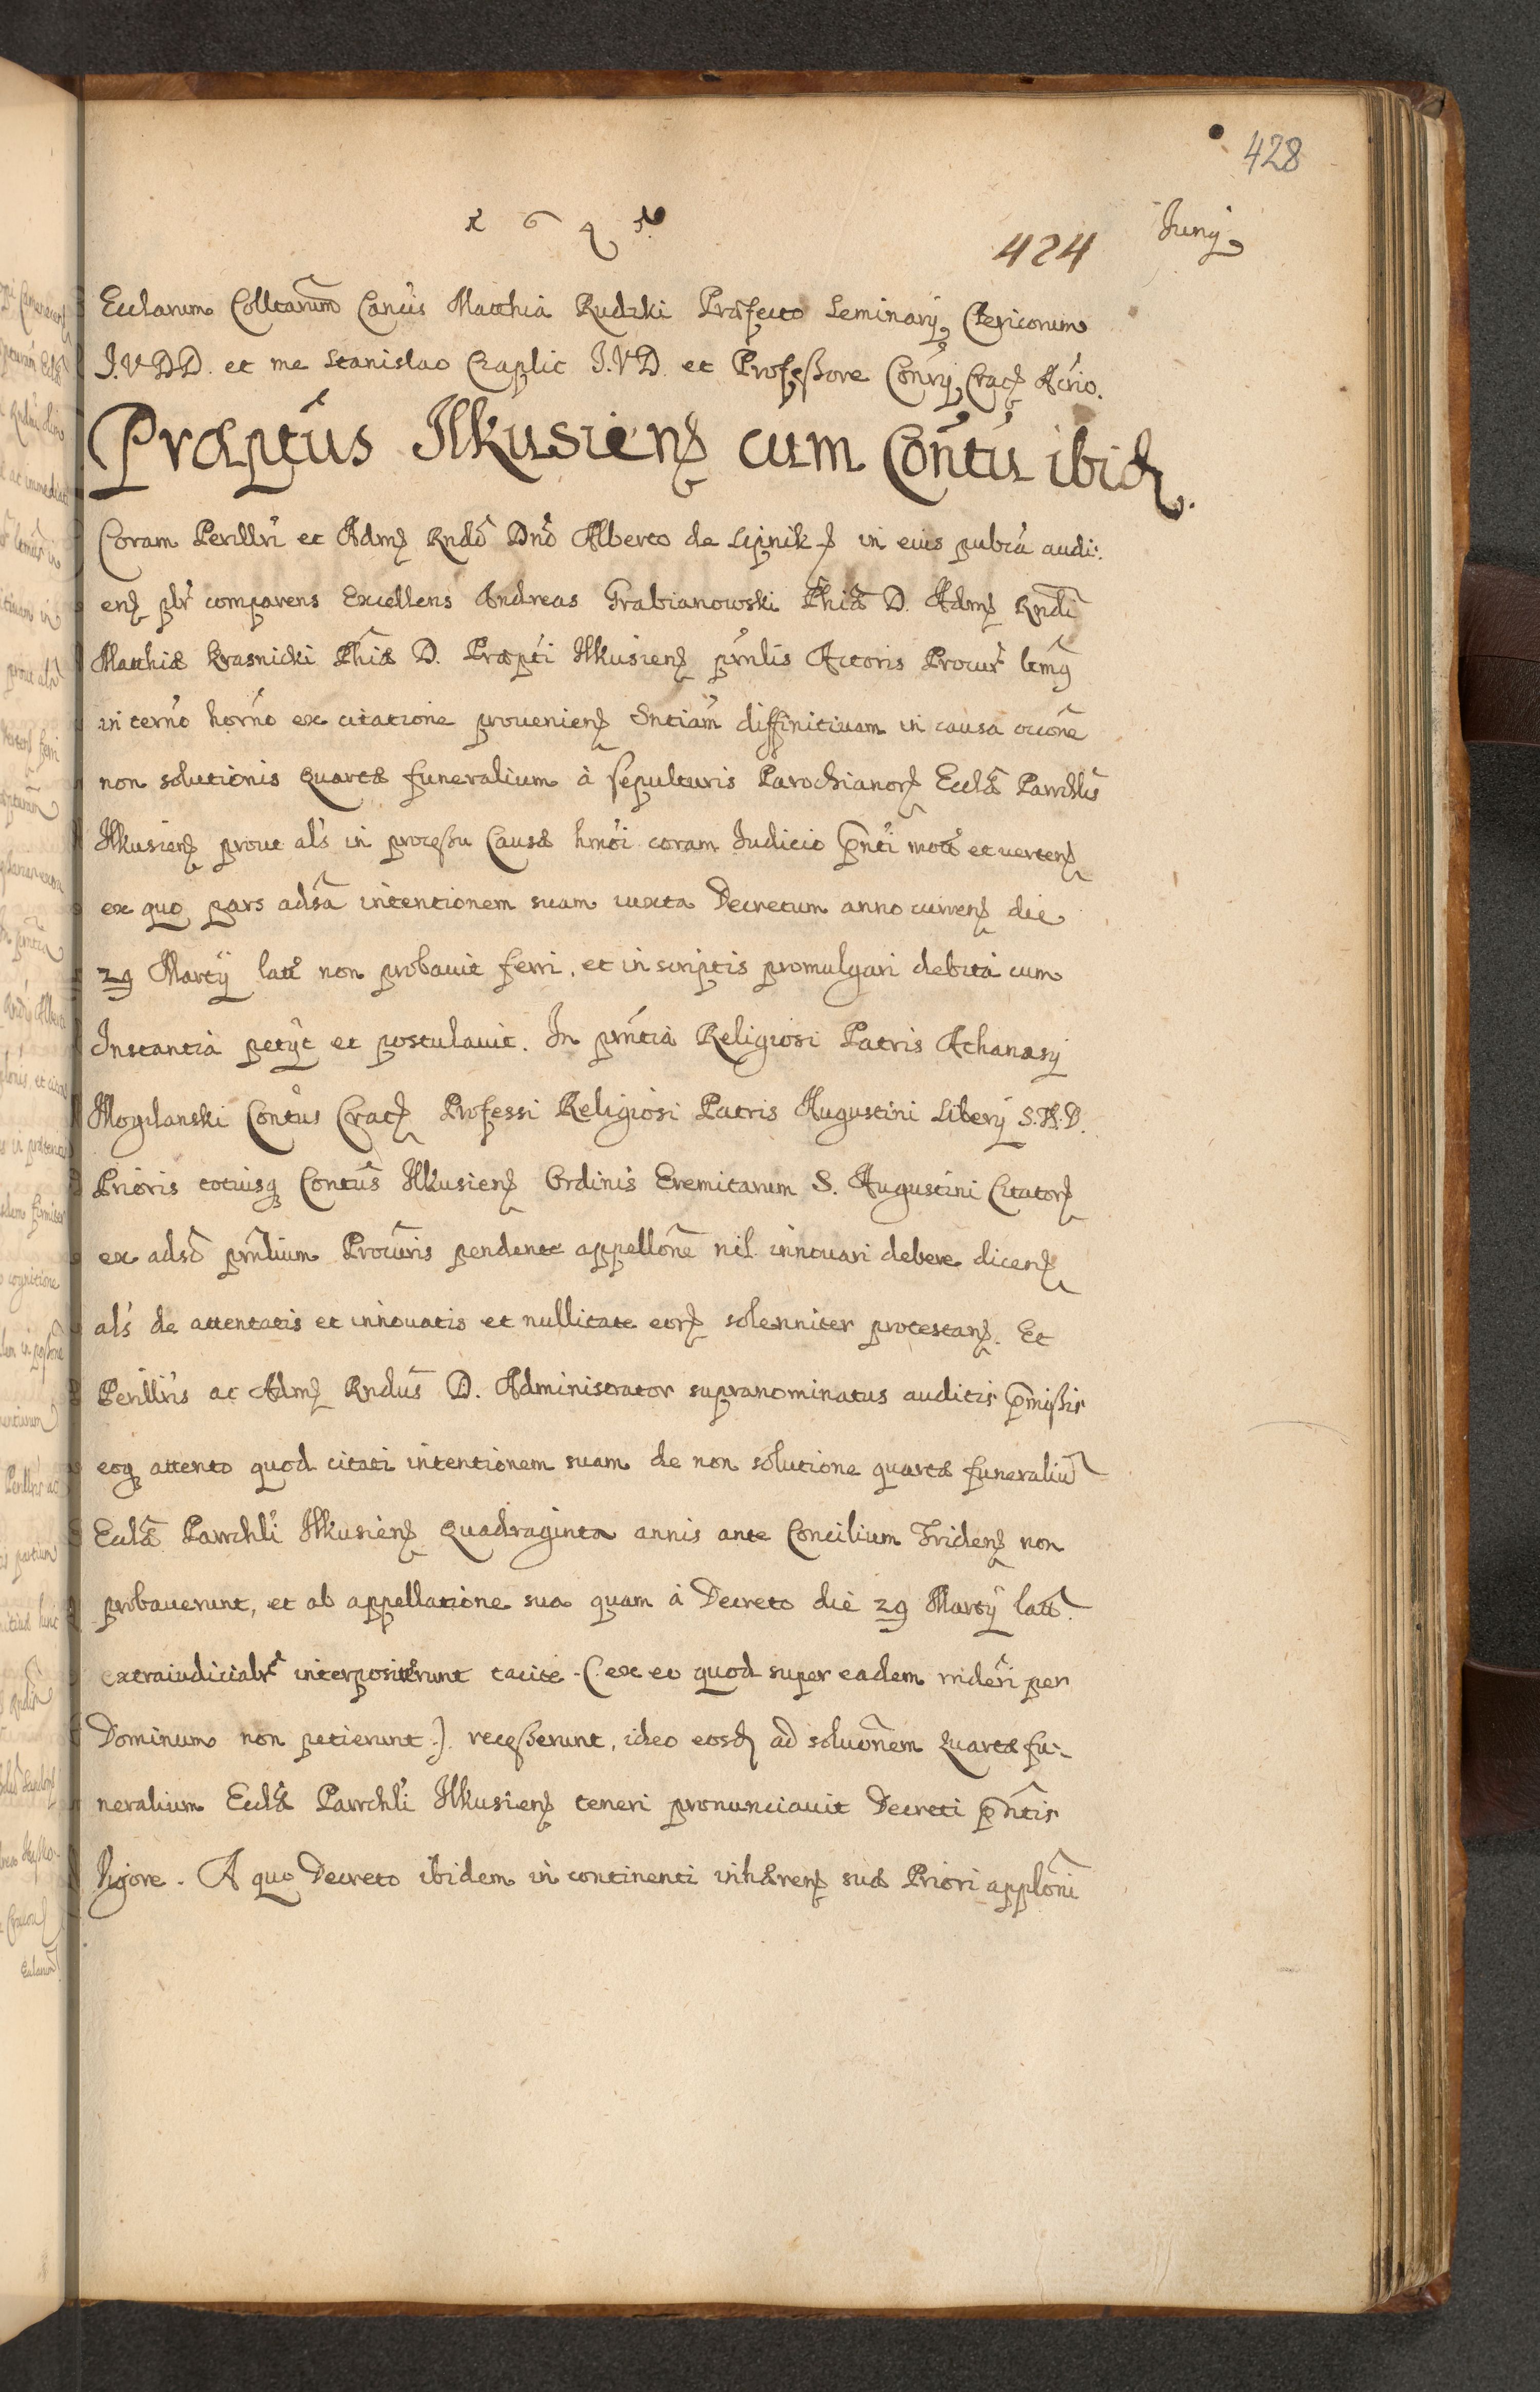 428
1 6 4 5
424
Junij
Ecclarum Colltarum Cancis Matthia Rudzki Præfecto Seminarij Clericorum
J.V.D.D. et me Stanislao Czaplic J.V.D. et Professore Consrij Crac Actrio.
Præptus Ilkusien cum Contu ibid.
Coram Perillri et Adm Rndo Dno Alberto de Lipnik in eius publca audi:
en plr comparens Excellens Andreas Grabianowski Phiæ D. Adm Rndi
Matthiæ Krasnicki Phiæ D. Præpti Ilkusien prnlis Actoris Procur ltmg
in terno horno ex citatione prouenien Sntiam diffinitiuam in causa occone
non solutionis quartæ funeralium à sepulturis Parochianor Ecclæ Parrchlis
Ilkusien prout als in processu Causæ hmoi coram Iudicio pnti motæ et verten
ex quo pars adsa intentionem suam iuxta Decretum anno curren die
29 Martij latt non probauit ferri, et in scriptis promulgari debita cum
Instantia petijt et postulauit. In prntia Religiosi Patris Athanasij
Mogilanski Contus Crac Professi Religiosi Patris Augustini Liberij S.Th.D.
Prioris totiusq Contus Ilkusien Ordinis Eremitarum S. Augustini Citator
ex adso prnlium Procuris pendente appellone nil innouari debere dicen
als de attentatis et innouatis et nullitate eor solenniter protestan. Et
Perillris ac Adm Rndus D. Administrator supranominatus auditis pmissis
eoq attento quod citati intentionem suam de non solutione quartæ funeraliu
Ecclæ Parrchli Ilkusien quadraginta annis ante Concilium Triden non
probauerunt, et ab appellatione sua quam à Decreto die 29 Martij latt.
extraiudicialr interposuerunt tacite (ex eo quod super eadem rnderi per
Dominum non petierunt) recesserunt, ideo eosd ad soluonem quartæ fu:
neralium Ecclæ Parrchli Ilkusien teneri pronunciauit Decreti pntis
vigore. A quo Decreto ibidem in continenti inhæren suæ Priori apploni